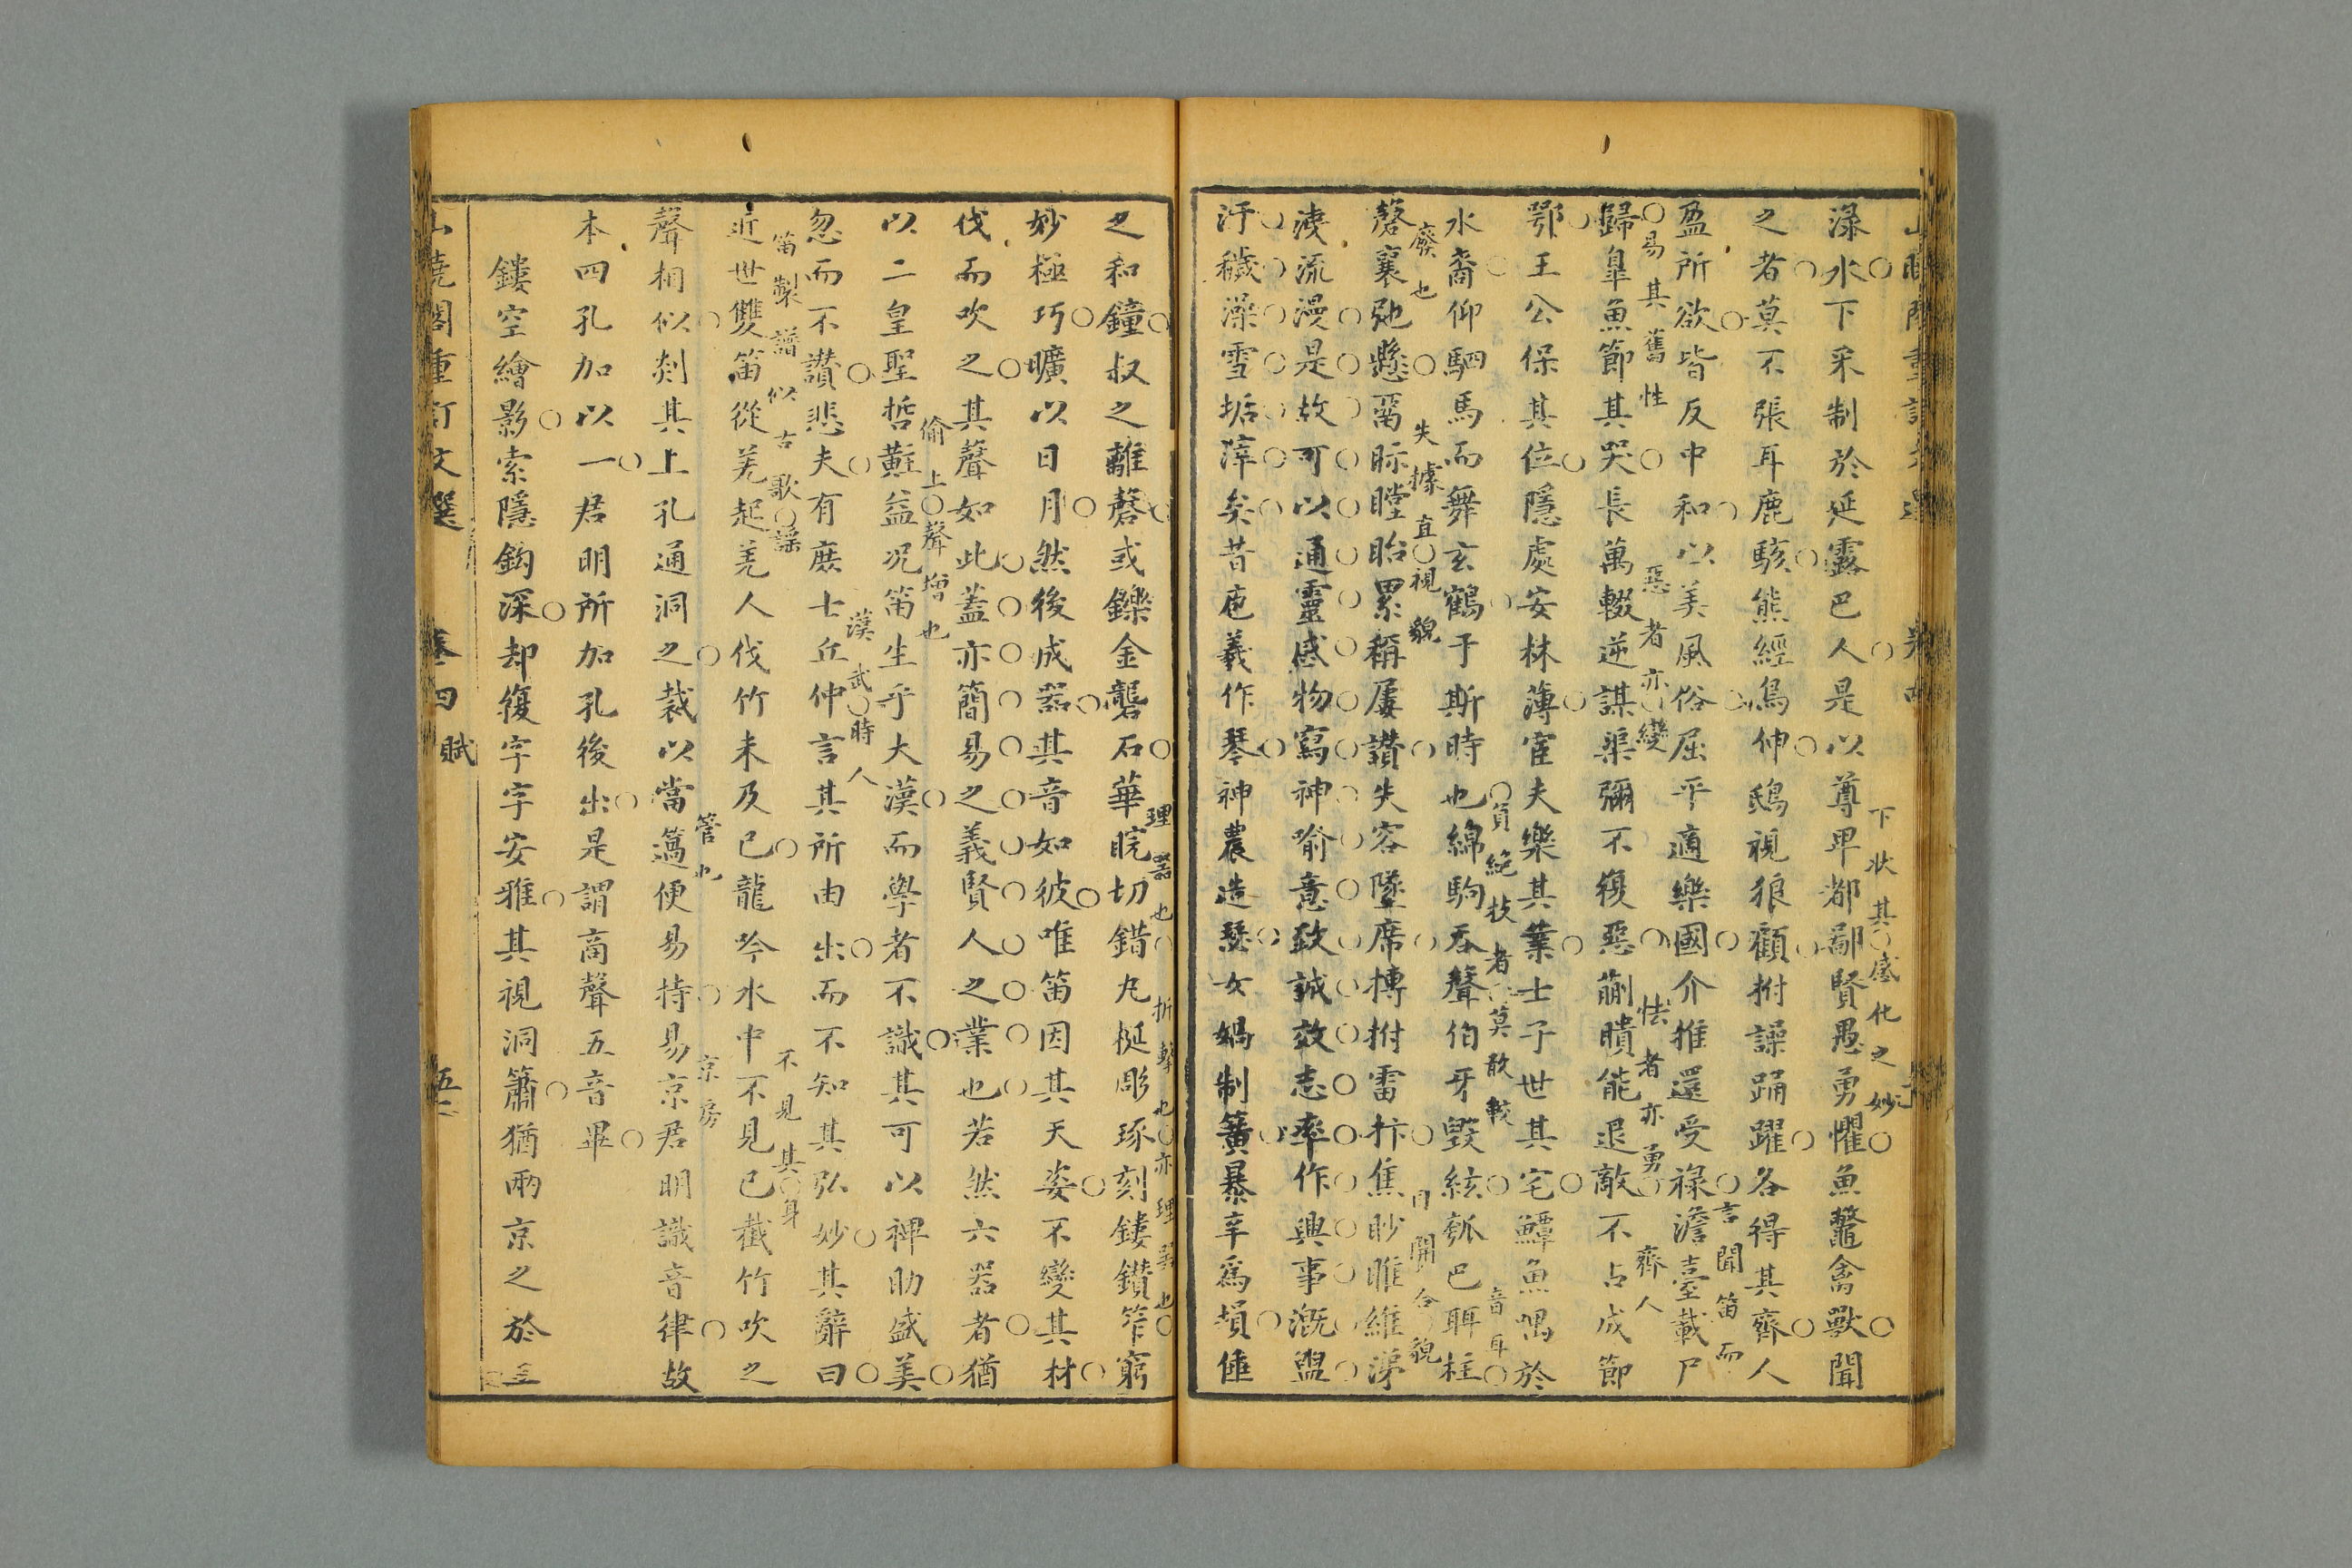 下狀其感化之妙
淥水下采制於延露巴人是以尊卑都鄙賢愚勇懼魚鼈禽獸聞
之者莫不張耳鹿駭熊經鳥伸鴟視狼顧拊譟踊躍各得其齊人
言聞笛而
盈所欲皆反中和以美風俗屈平適樂國介推還受祿澹臺載尸
易其舊性 惡者亦變 怯者亦勇 齊人
歸皐魚節其哭長萬輟逆謀渠彌不復惡蒯聵能退敵不占成節
鄂王公保其位隱處安林薄宦夫樂其業士子世其宅鱏魚喁於
負絕技者莫敢較 音耳
水裔仰駟馬而舞玄鶴于斯時也綿駒吞聲伯牙毀絃瓠巴聑柱
廢也 失據直視貌 開合貌
磬襄弛懸留眎瞠眙累稱屢讚失容墜席搏拊雷抃僬眇睢維涕
洟流漫是故可以通靈感物寫神喻意致誠效志率作興事溉盥
汙穢澡雪垢滓矣昔庖羲作琴神農造瑟女媧制簧暴辛爲塤倕
理器也 折擊也亦理義也
之和鐘叔之離磬或鑠金礲石華睆切錯丸梴彫琢刻鏤鑽笮窮
妙極巧曠以日月然後成器其音如彼唯笛因其天姿不變其材
伐而吹之其聲如此蓋亦簡易之義賢人之業也若然六器者猶
偷上聲增也
以二皇聖哲黈益况笛生乎大漢而學者不識其可以裨助盛美
漢武時人
忽而不讚悲夫有庶士丘仲言其所由出而不知其弘妙其辭曰
笛製譜似古歌謠 不見其身
近世雙笛從羌起羌人伐竹未及已龍吟水中不見已截竹吹之
管也 京房
聲相似剡其上孔通洞之裁以當簻便易持易京君明識音律故
本四孔加以一君明所加孔後出是謂商聲五音畢
鏤空繪影索隱鈎深却復字字安雅其視洞簫猶兩京之於三
山曉閣重訂文選 卷四 賦